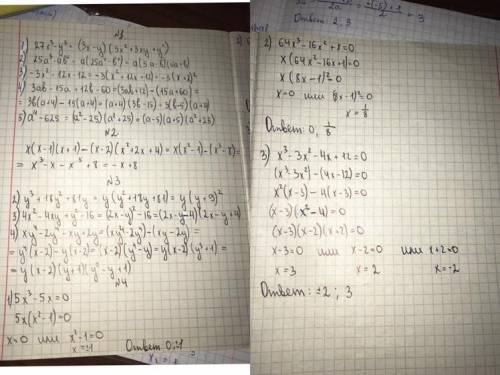 N1
1) 27x³-y³ = (3x-y)(3x²+3xy+y²)
2) 25a³-ab² = a(25a²-b²) = a(5a-b)(5a+b)
3) -3x²-12x-12 = -3(x²+12x-12) = -3(x+2)²
4) 3ab-15a+12b-60 = (3ab+12)-(15a+60) =
= 3b(a+4)-15(a+4) = (a+4)(3b-15) = 3(b-5)(a+4)
5) a⁴-625 = (a²-25)(a²+25) = (a-5)(a+5)(a²+25)
N2
x(x-1)(x+1)-(x-2)(x²+2x+4) = x(x²-1)-(x³-8) =
= x³-x-x³+8 = -x+8
N3
2) y³+18y²+81y = y(y²+18y+81) = y(y+9)²
3) 4x²-4xy+y²-16 = (2x-y)²-16 = (2x-y-4)(2x-y+4)
4) xy⁴-2y⁴-xy+2y = (xy⁴-2y⁴)-(xy-2y) =
= y⁴(x-2)-y(x-2) = (x-2)(y⁴-y) = y(x-2)(y³+1) =
= y(x-2)(y+1)(y²-y+1)
N4
1) 5x³-5x=0
5x(x²-1)=0
x=0 или x²-1=0
x=±1
Ответ: 0; ±1
Ответ: 2; 3
2) 64x³-16x²+x=0
x(64x²-16x+1)=0
x(8x-1)²=0
x=0 или (8x-1)²=0
x=1/8
Ответ: 0, 1/8
3) x³-3x²-4x+12=0
(x³-3x²)-(4x-12)=0
x²(x-3)-4(x-3)=0
(x-3)(x²-4)=0
(x-3)(x-2)(x+2)=0
x-3=0 или x-2=0 или x+2=0
x=3 x=2 x=-2
Ответ: ±2; 3